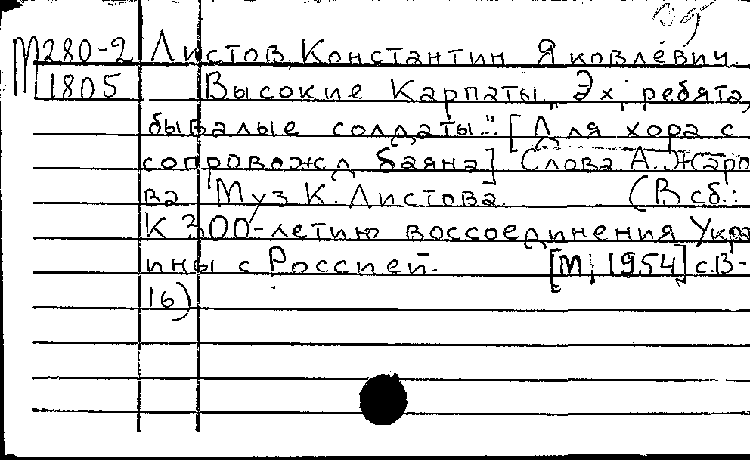 М280-2 Листов Константин Яковлевич.
1805 Высокие Карпаты „Эх, ребята,
бывалые солдаты..." [Для хора с
сопровожд. баяна] Слова А. Жаро-
ва Муз К. Листова. (В сб.:
К 300-летию воссоединения Укра-
ины с Россией. [М, 1954] с. 13-
16)